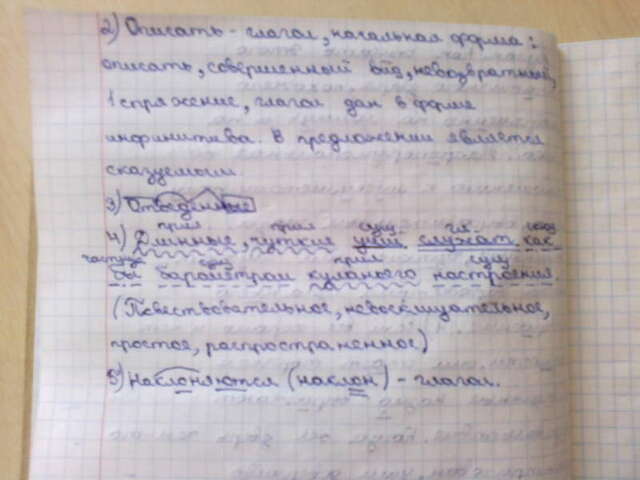 2) Описать - глагол, начальная форма:
описать, совершенный вид, невозвратный,
1 спряжение, глагол дан в форме
инфинитива. В предложении является
сказуемым.
3) Отведенные
прил. прил. сущ. гл. союз
4) Длинные, чуткие уши служат как
частица сущ. прил. сущ.
бы барометром кумного настроения
(Повествовательное, невосклицательное,
простое, распространенное)
5) Наклоняются (наклон) - глагол.